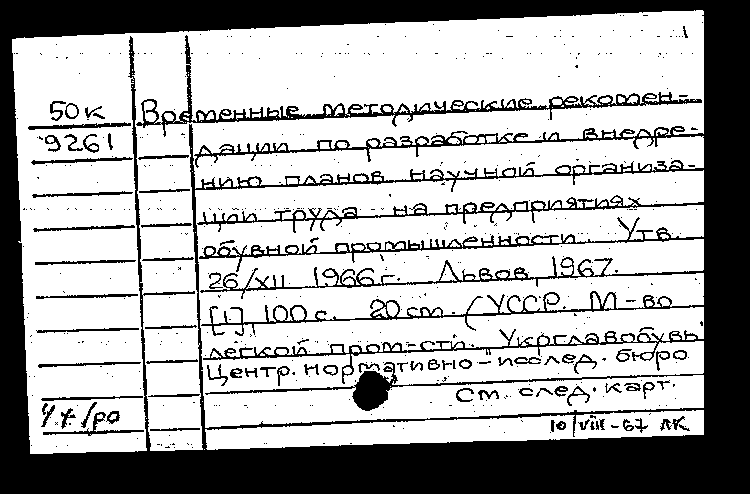 1
50к Временные методические рекомен-
9261 дации по разработке и внедре-
нию планов научной организа-
ции труда на предприятиях
обувной промышленности. Утв.
26/XII 1966 г. Львов, 1967.
[1], 100 с. 20 см. (УССР. М-во
легкой пром-сти. Укрглавобувь
Центр. нормативно-исслед. бюро
См. след. карт.
10/VIII-67 ЛК